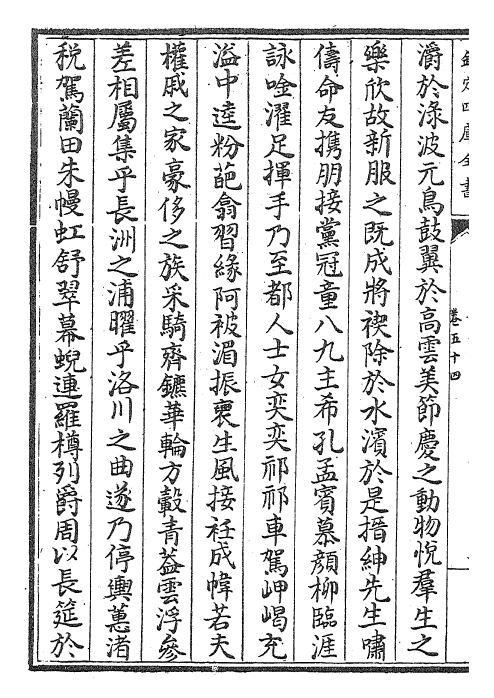 欽定四庫全書
卷五十四
濯於淥波元鳥鼓翼於高雲美節慶之動物悅羣生之
樂欣故新服之既成將禊除於水濱於是搢紳先生嘯
儔命友携朋接黨冠童八九主希孔孟賓慕顔柳臨涯
詠唫濯足揮手乃至都人士女奕奕祁祁車駕岬嵑充
溢中逵粉葩翕習緣阿被湄振褏生風接衽成幃若夫
權戚之家豪侈之族采騎齊鑣華輪方轂青葢雲浮參
差相屬集乎長洲之浦曜乎洛川之曲遂乃停輿蕙渚
税駕蘭田朱幔虹舒翠幕蜺連羅樽列爵周以長筵於